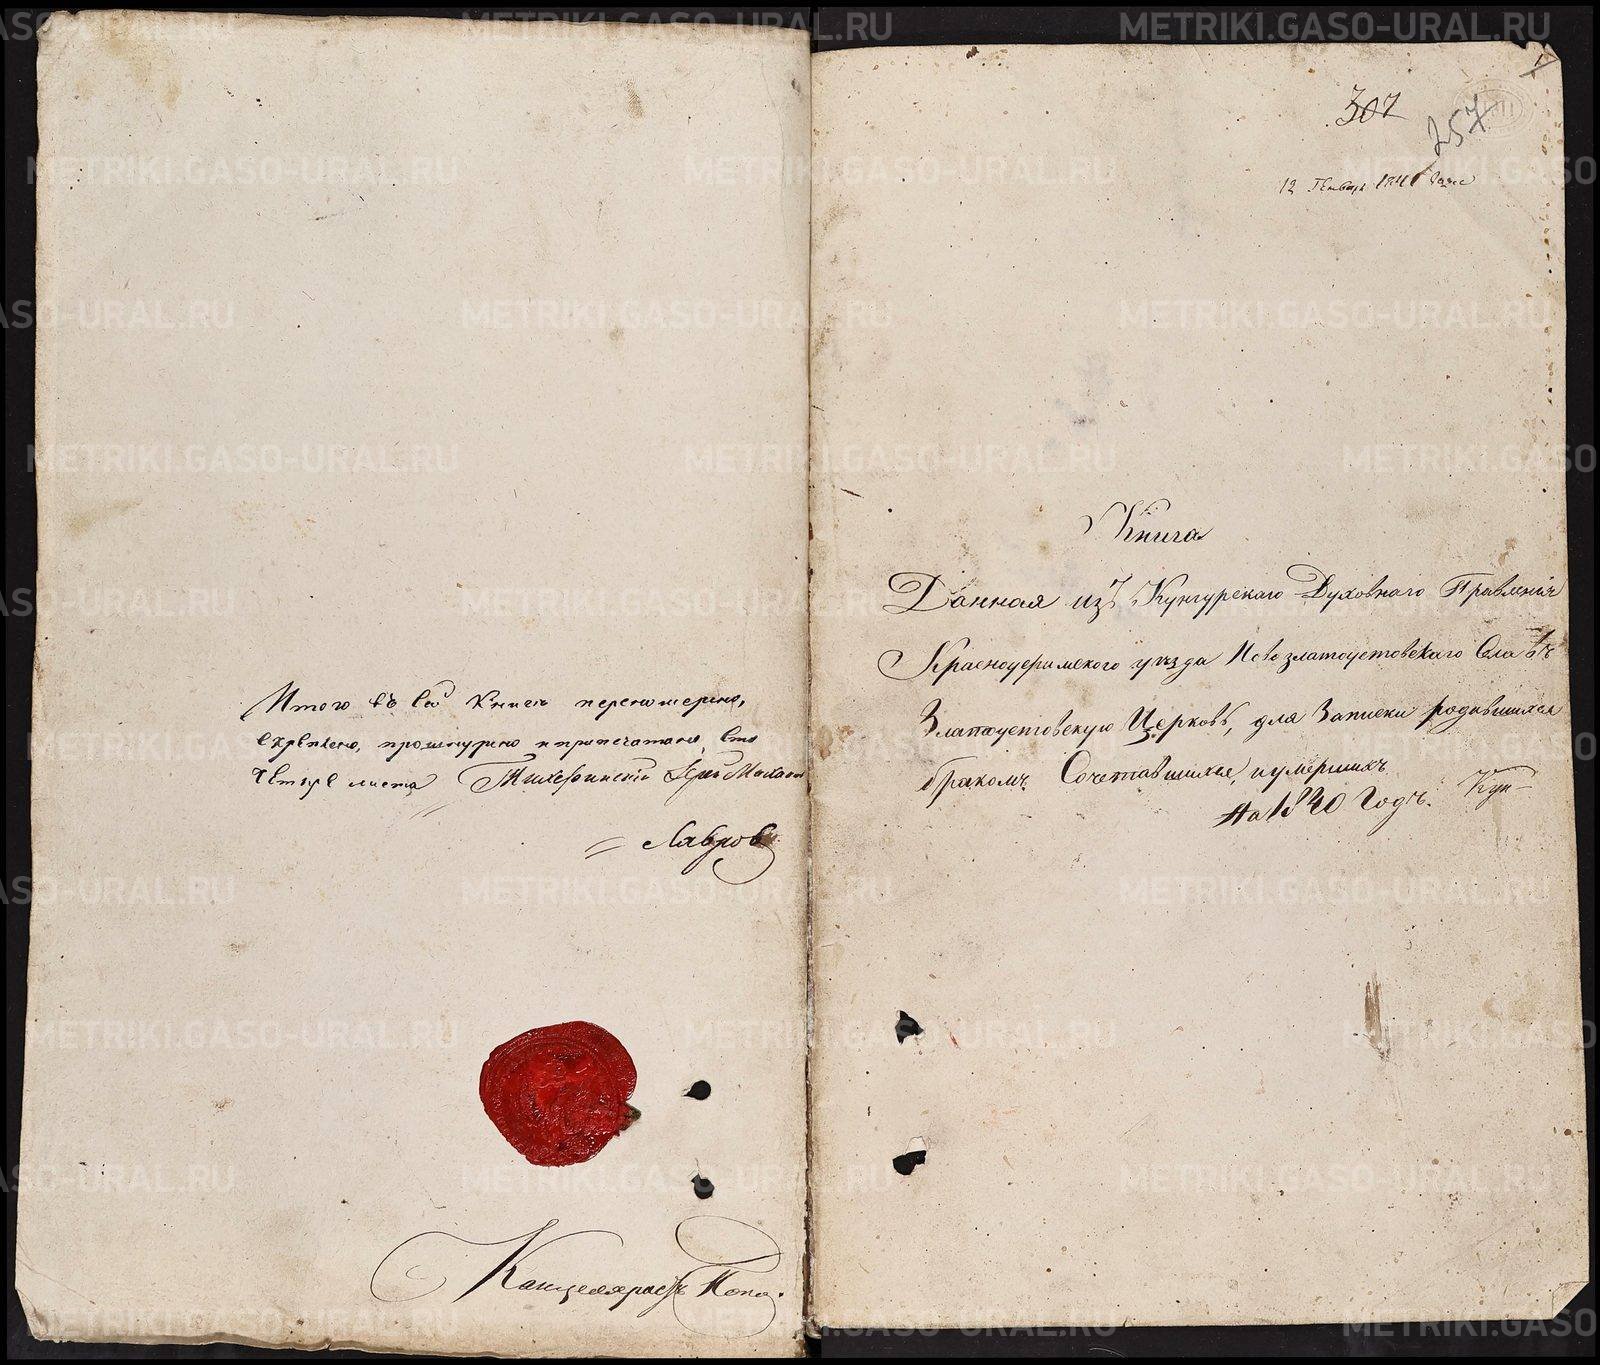 Итого въ сей книгѣ перенумерено,
скрѣплено, прошнурено и припечатано сто
четыре листа
Лавровъ
Канцеляристъ Попо.
1
307
257
12 Генваря 1841 года
Книга
Данная изъ Кунгурскаго Духовнаго Правленія
Красноуфимскаго уѣзда Новозлатоустовскаго Села въ
Златоустовскую Церковь, для Записки родившихся
бракомъ Сочетавшихся, и умершихъ
На 1840 Годъ. Кун-
METRIKI.GASO-URAL.RU